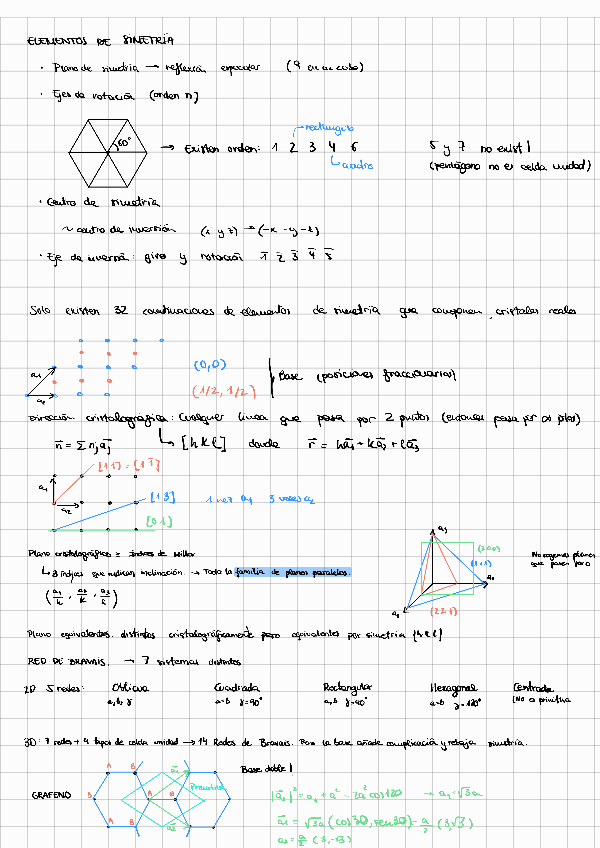 ELEMENTOS DE SIMETRÍA
· Plano de simetría → reflexión especular (9 en un cubo)
· Ejes de rotación (orden n)
60°
→ Existen orden: 1 2 3 4 6
rectángulo
cuadro
5 y 7 no exist!
(pentágono no es celda unidad)
· Centro de simetría
~ centro de inversión (x y z) → (-x -y -z)
· Eje de inversió: giro y rotación 1̄ 2̄ 3̄ 4̄
Solo existen 32 combinaciones de elementos de simetría que componen cristales reales
a₁
a₂
(0,0)
(1/2, 1/2)
Base (posiciones fraccionarias)
Dirección cristalográfica: cualquier línea que pasa por 2 puntos (entonces pasa por
n⃗ = Σ nⱼ a⃗ⱼ ↳ [h k l] donde r⃗ = ha⃗₁ + ka⃗₂ + la⃗₃
[1 1] = [1̄ 1̄]
a₁
a₂
[1 3] 1 vez a₁ 3 veces a₂
[0 1]
Plano cristalográfico = índices de Miller
↳ 3 índices que indican inclinación. → Toda la familia de planos paralelos.
(a₁/h , a₂/k , a₃/l)
a₃
(200)
(111)
a₂
a₁
(221)
No cogemos planos
que pasen por 0
Planos equivalentes: distintos cristalográficamente pero equivalentes por simetría {h k l}
RED DE BRAVAIS. → 7 sistemas distintos
2D 5 redes: Oblicua Cuadrada Rectangular Hexagonal Centrada
a, b, γ a=b γ=90° a, b γ=90° a=b γ=120° (No a primitiva
3D: 7 redes + 4 tipos de celda unidad → 14 Redes de Bravais. Pero la base añade complicación y rebaja simetría.
GRAFENO
A B
B A B
A B
a⃗₁
a⃗₂
Primitiva
Base doble!
|a⃗₁|² = a² + a² - 2a² cos120 → a₁ = √3a
a⃗₁ = √3a (cos30, sen30) = a/2 (3, √3)
a₂ = a/2 (3, -√3)